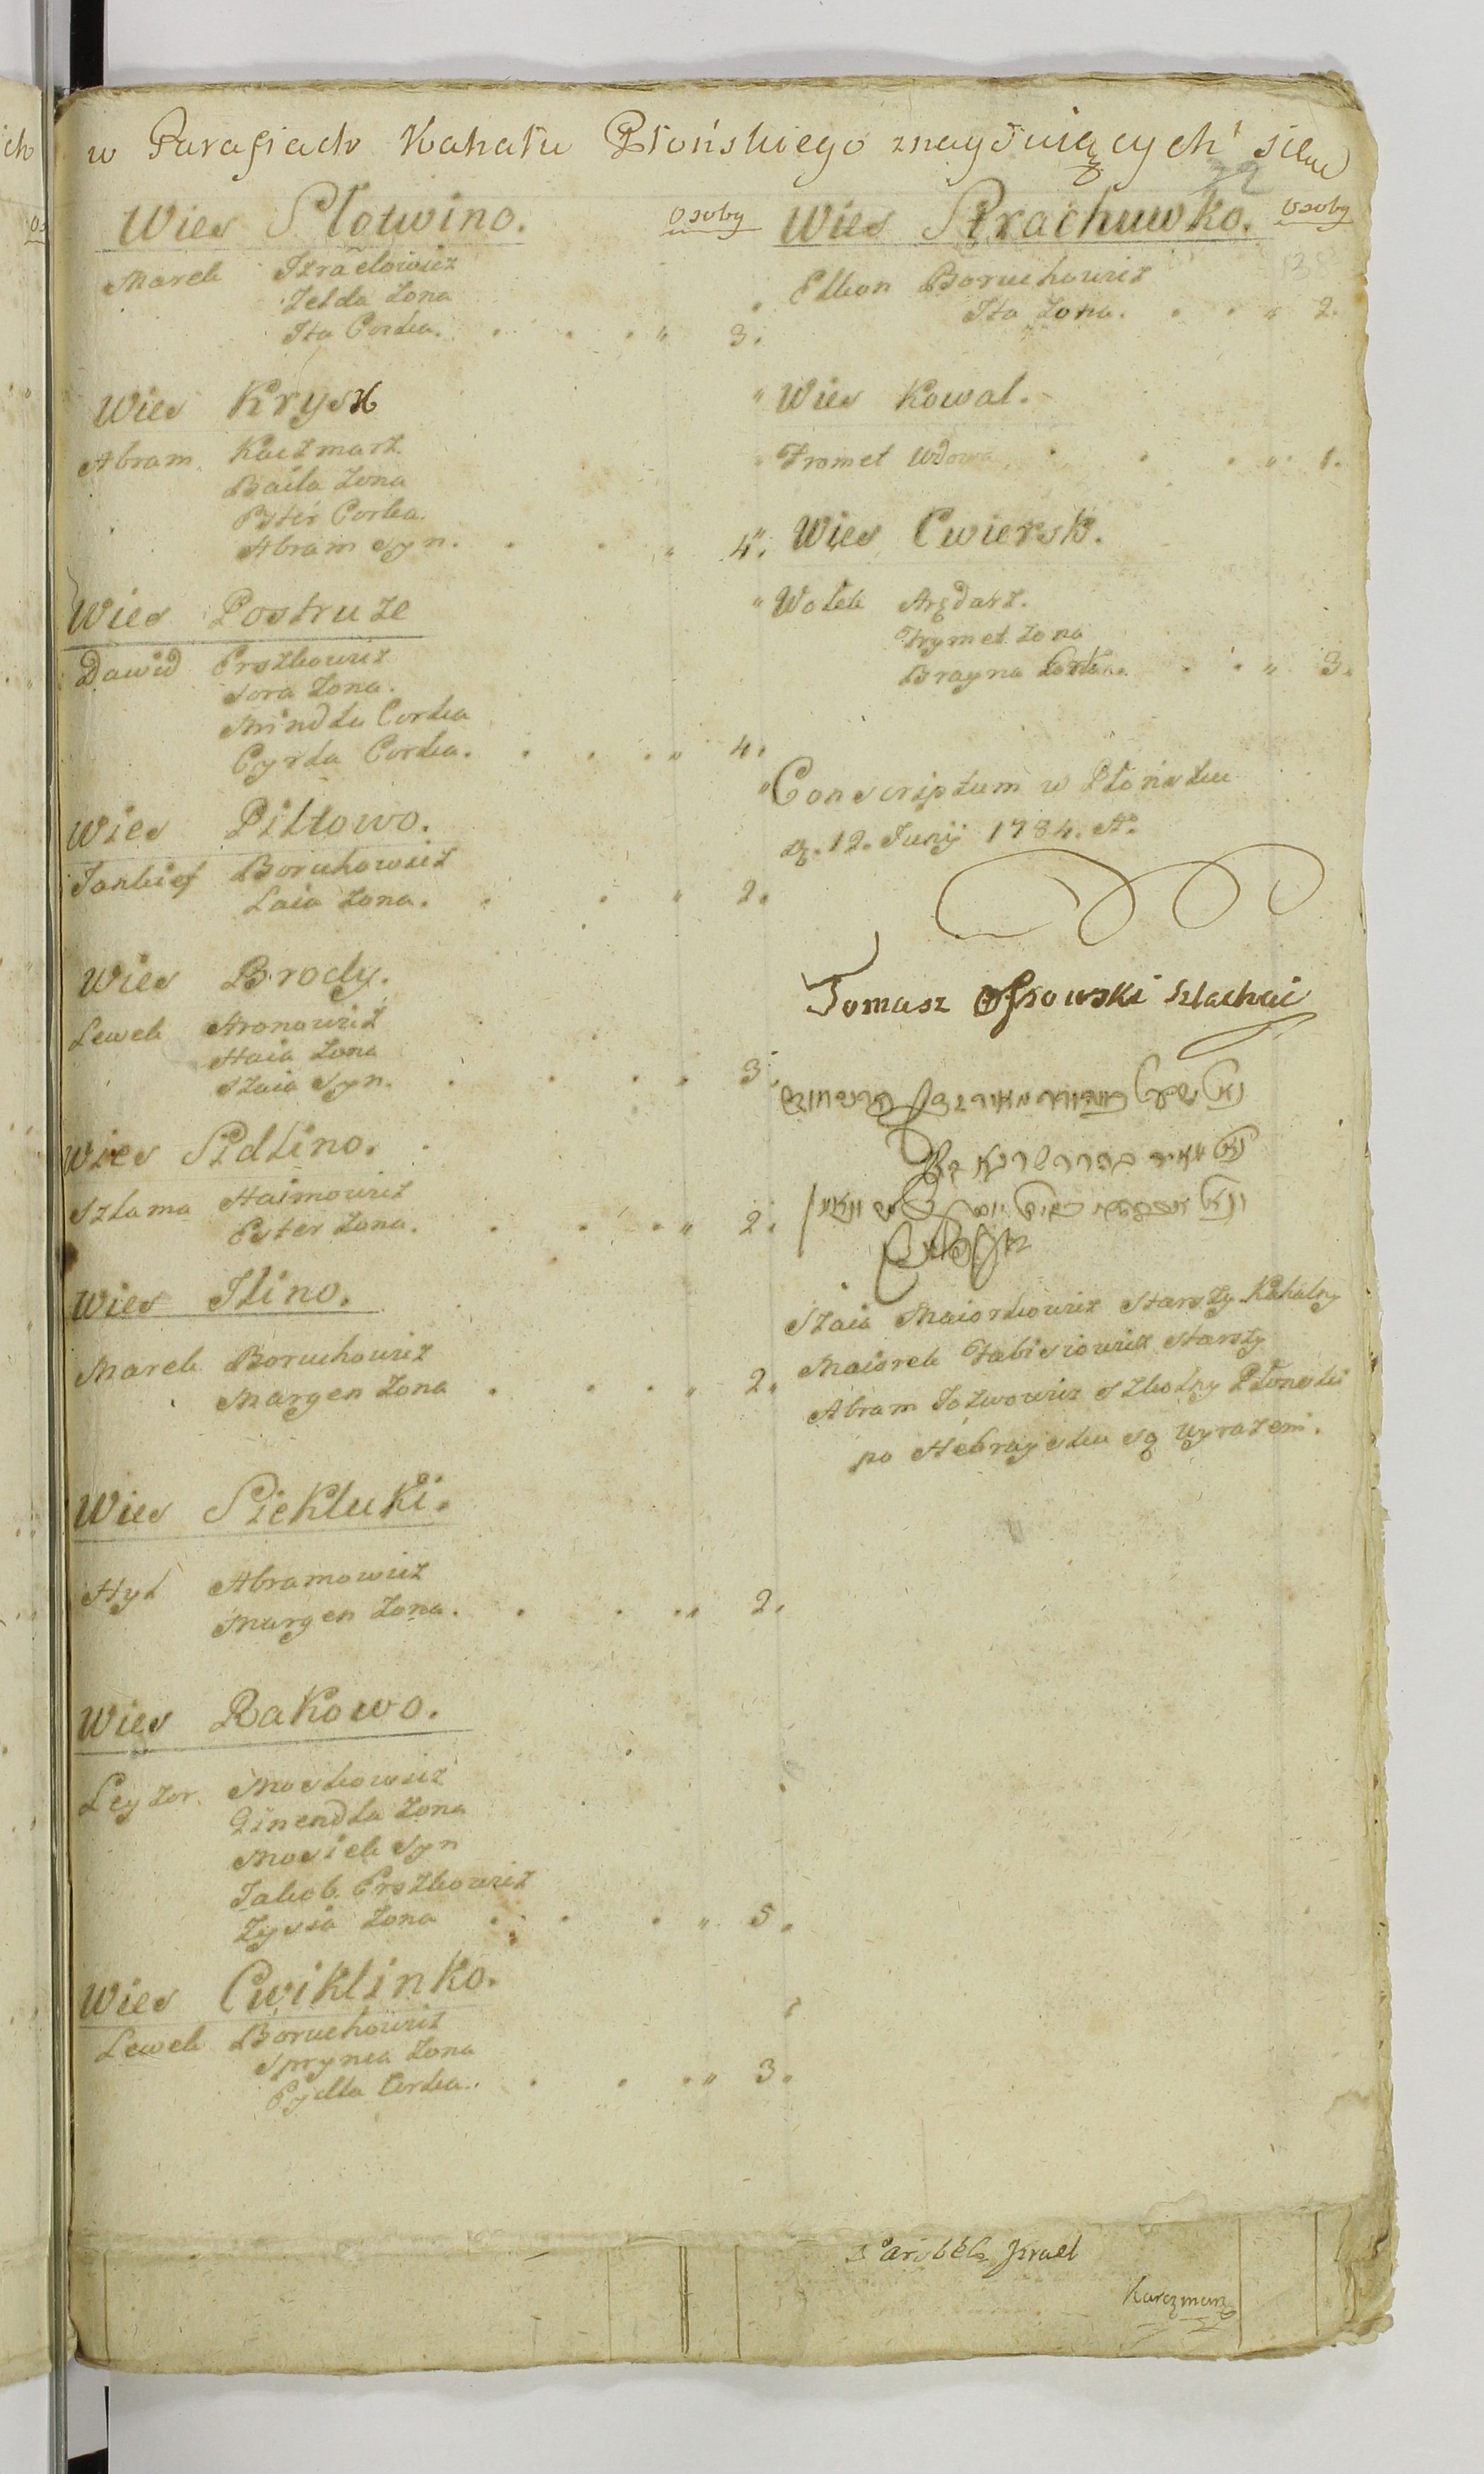 w Parafiach Kahału Płońskiego znayduiących się
22
Wies Słowino. osoby
Marek Izraelowicz
Zelda Zona
Ita Corka. 3.
Wies Krysk
Abram Kaczmarz
Baila Zona
Ester Corka.
Abram Syn. 4.
Wies Postruze
Dawid Erszkowicz
Sora Zona.
Mindla Corka
Cyrla Corka. 4.
Wies Pilłowo.
Jankief Boruchowicz
Laia Zona. 2.
Wies Brody.
Lewek Aronowicz
Haia Zona
Szaia Syn. 3.
Wies Sidlino.
Szlama Haimowicz
Ester Zona. 2.
Wies Ilino.
Marek Boruchowicz
Margen Zona 2.
Wies Siekluki.
Hyl Abramowicz
Margen Zona. 2.
Wies Rakowo.
Leyzor Moskowicz
Ginendla Zona
Mosiek Syn
Jakob Erszkowicz
Zysia Zona 5.
Wies Cwiklinko.
Lewek Boruchowicz
Sprynca Zona
Corka. 3.
Wies Strachuwko. osoby
Elkon Boruchowicz
Ita Zona. 2.
Wies Kowal.
Fromet Wdowa 1.
Wies Cwiersk.
Wolek Arędarz.
Frymet Zona
Brayna Corka. 3.
Conscriptum w Płońsku
d. 12. Junij 1784. Ao.
Tomasz Ossowski Szlachcic
Szaia Maiorkowicz Starszy Kahalny
Maiorek Fabisiowicz Starszy
Abram Jozwowicz Szkolny Płonski
po Hebraysku są wyrażeni.
Parobek Izrael
Karczmarz